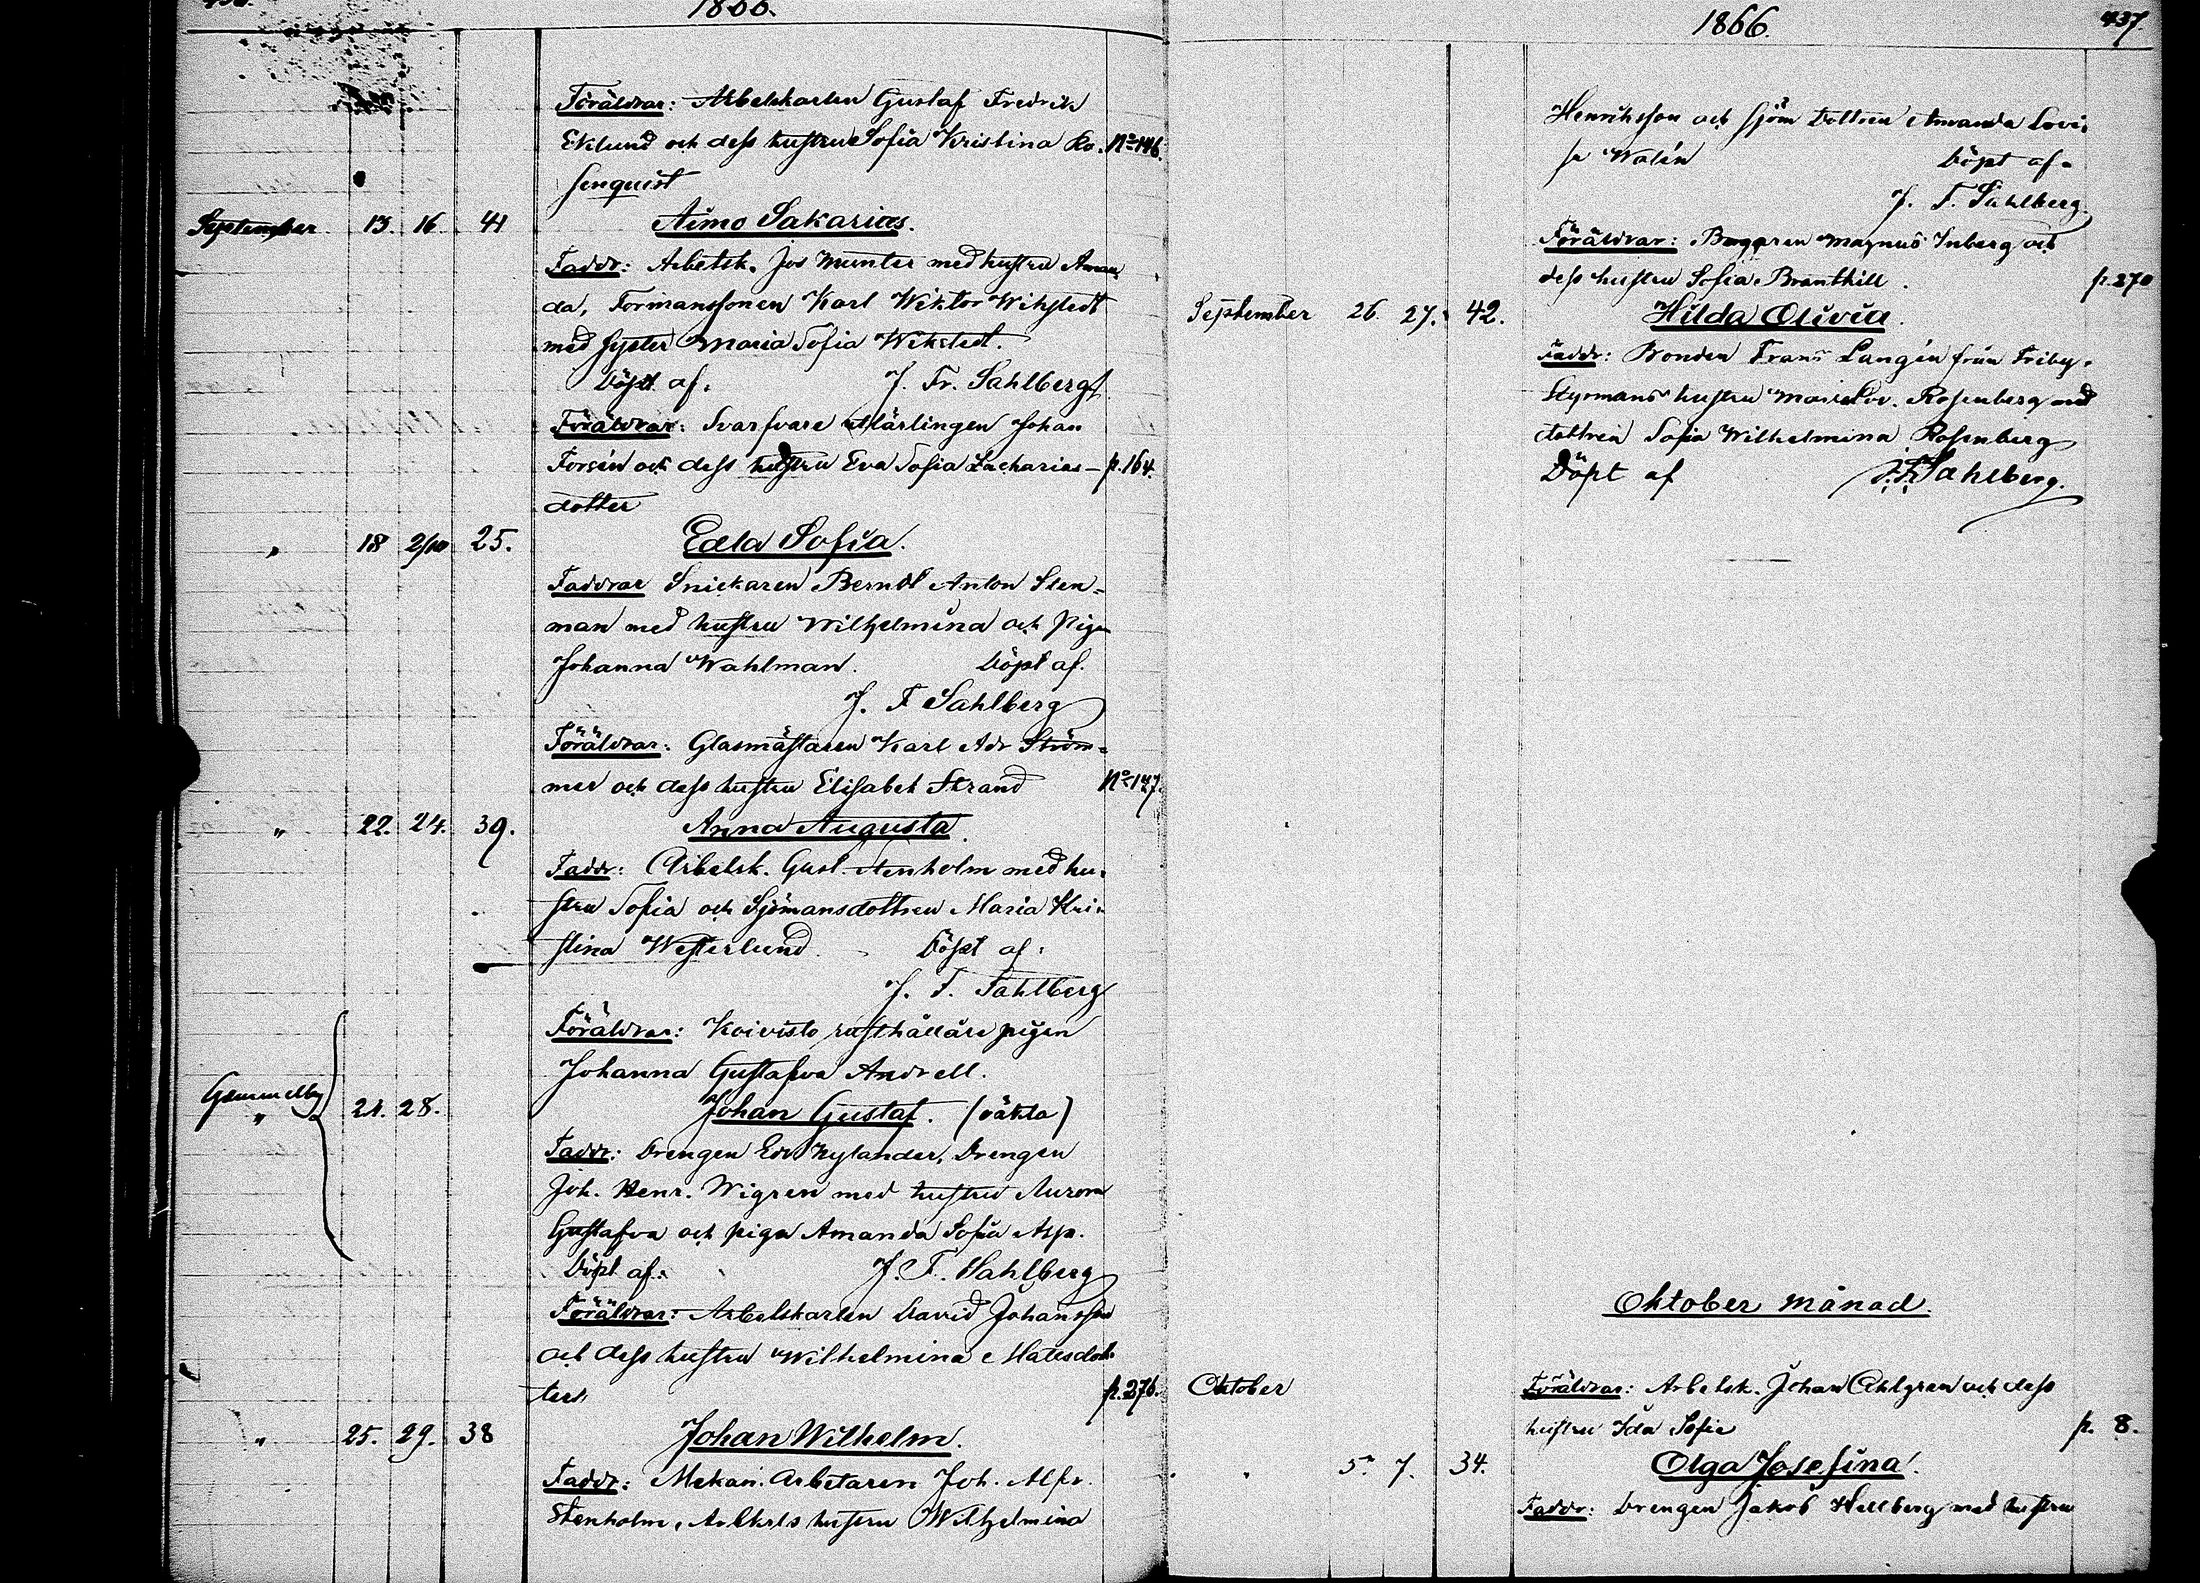 1866.
Föräldrar: Arbetskarlen Gustaf Fredrik
Eklund och dess hustru Sofia Kristina Ro- No 146.
senquist
September 13. 16. 41 Aimo Sakarias.
Faddr: Arbetsk. Jos Munter med hustru Aman
da, Formanssonen Karl Wiktor Wikstedt
med syster Maria Sofia Wikstedt.
Döpt af. J. Fr. Sahlberg
Föräldrar: Svarfvare lärlingen Johan
Forsén och dess hustru Eva Sofia Zacharias- p. 164.
dotter
" 18 2/10 25. Edla Sofia.
Faddrar Snickaren Berndt Anton Sten-
man med hustru Wilhelmina och Pigan
Johanna Wahlman. Döpt af.
J. F Sahlberg
Föräldrar: Glasmästaren Karl Adr Ström-
mer och dess hustru Elisabet Strand No 147.
" 22. 24. 39. Anna Augusta.
Faddr: Arbetsk. Gust. Stenholm med hu-
stru Sofia och Sjömansdottren Maria Kri-
stina Westerlund. Döpt af:
J. F. Sahlberg
Föräldrar: Koivisto rusthållare pigan
Johanna Gustafva Andrell.
Gammelby
" 21. 28. Johan Gustaf. (oäkta)
Faddr: Drengen Edv Nylander, Drengen
Joh. Henr. Wigren med hustru Aurora
Gustafva och piga Amanda Sofia Asp.
Döpt af: J. F. Sahlberg
Föräldrar: Arbetskarlen David Johansson
och dess hustru Wilhelmina Matsdot-
ter. p. 276.
" 25. 29. 38 Johan Wilhelm.
Faddr: Mekan. Arbetaren Joh. Alfr.
Stenholm, Arbkrls hustru Wilhelmina
1866. 437.
Henriksson och sjöm dottren Amanda Lovi-
sa Walén Döpt af-
J. F. Sahlberg.
Föräldrar: Magnus Inberg och
dess hustru Sofia Branthill. p. 270
September 26. 27. 42. Hilda Olivia.
Faddr: Bonden Frans Langén från Friby.
Styrmans hustru Maria Lov. Rosenberg med
dottren Sofia Wilhelmina Rosenberg
Döpt af J. F. Sahlberg.
Oktober månad.
Oktober Föräldrar: Arbetsk. Johan Ahlgren och dess
hustru Ida Sofia p. 8.
" 5. 7. 34. Olga Josefina.
Faddr: Drengen Jakob Hellberg med hustru